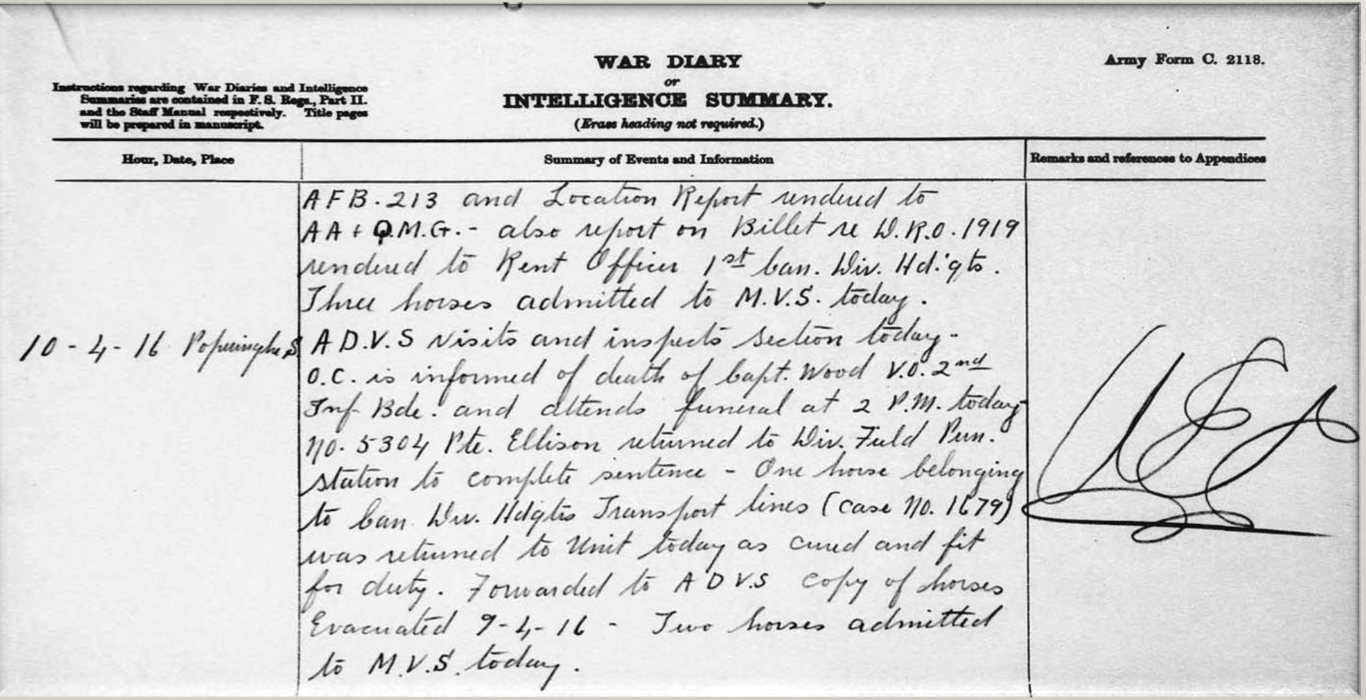 WAR DIARY
or
INTELLIGENCE SUMMARY.
(Erase heading not required.)
Army Form C. 2118.
Instructions regarding War Diaries and Intelligence
Summaries are contained in F. S. Regs., Part II.
and the Staff Manual respectively. Title pages
will be prepared in manuscript.
Hour, Date, Place
Summary of Events and Information
Remarks and references to Appendices
AFB. 213 and Location Report rendered to
AA + Q.M.G. - also report on Billet re D.R.O. 1919
rendered to Rent Officer 1st Can. Div. Hd'qts.
Three horses admitted to M.V.S. today.
10-4-16 Poperinghe
A.D.V.S visits and inspects section today -
O.C. is informed of death of Capt. Wood V.O. 2nd
Inf Bde. and attends funeral at 2 P.M. today
No. 5304 Pte. Ellison returned to Div. Field Pun.
station to complete sentence - One horse belonging
to Can. Div. Hdqts Transport lines (case No. 1679)
was returned to Unit today as cured and fit
for duty. Forwarded to A D V.S copy of horses
Evacuated 9-4-16 - Two horses admitted
to M.V.S. today.